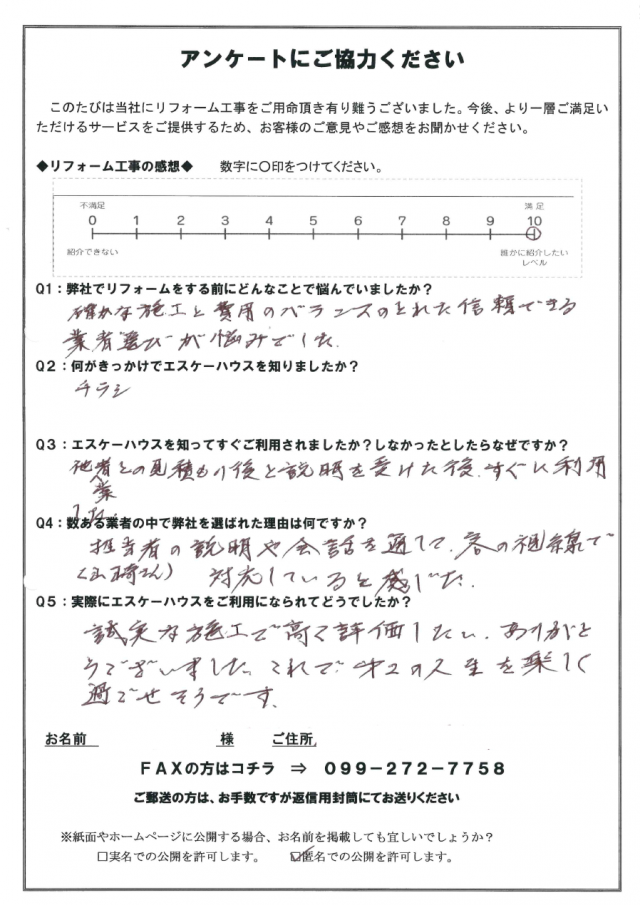 アンケートにご協力ください
このたびは当社にリフォーム工事をご用命頂き有り難うございました。今後、より一層ご満足い
ただけるサービスをご提供するため、お客様のご意見やご感想をお聞かせください。
◆リフォーム工事の感想◆ 数字に〇印をつけてください。
不満足 満足
0 1 2 3 4 5 6 7 8 9 10
紹介できない 誰かに紹介したい
レベル
Q1：弊社でリフォームをする前にどんなことで悩んでいましたか？
確かな施工と費用のバランスのとれた信頼できる
業者選びが悩みでした。
Q2：何がきっかけでエスケーハウスを知りましたか？
チラシ
Q3：エスケーハウスを知ってすぐご利用されましたか？しなかったとしたらなぜですか？
他業者との見積もり後と説明を受けた後、すぐに利用
した。
Q4：数ある業者の中で弊社を選ばれた理由は何ですか？
担当者の説明や会話を通して、客の視線で
（山崎さん） 対応していると感じた。
Q5：実際にエスケーハウスをご利用になられてどうでしたか？
誠実な施工で高く評価したい。ありがと
うございました。これで、才2の人生を楽しく
過ごせそうです。
お名前 様 ご住所
ＦＡＸの方はコチラ ⇒ ０９９-２７２-７７５８
ご郵送の方は、お手数ですが返信用封筒にてお送りください
※紙面やホームページに公開する場合、お名前を掲載しても宜しいでしょうか？
□実名での公開を許可します。 ☑匿名での公開を許可します。